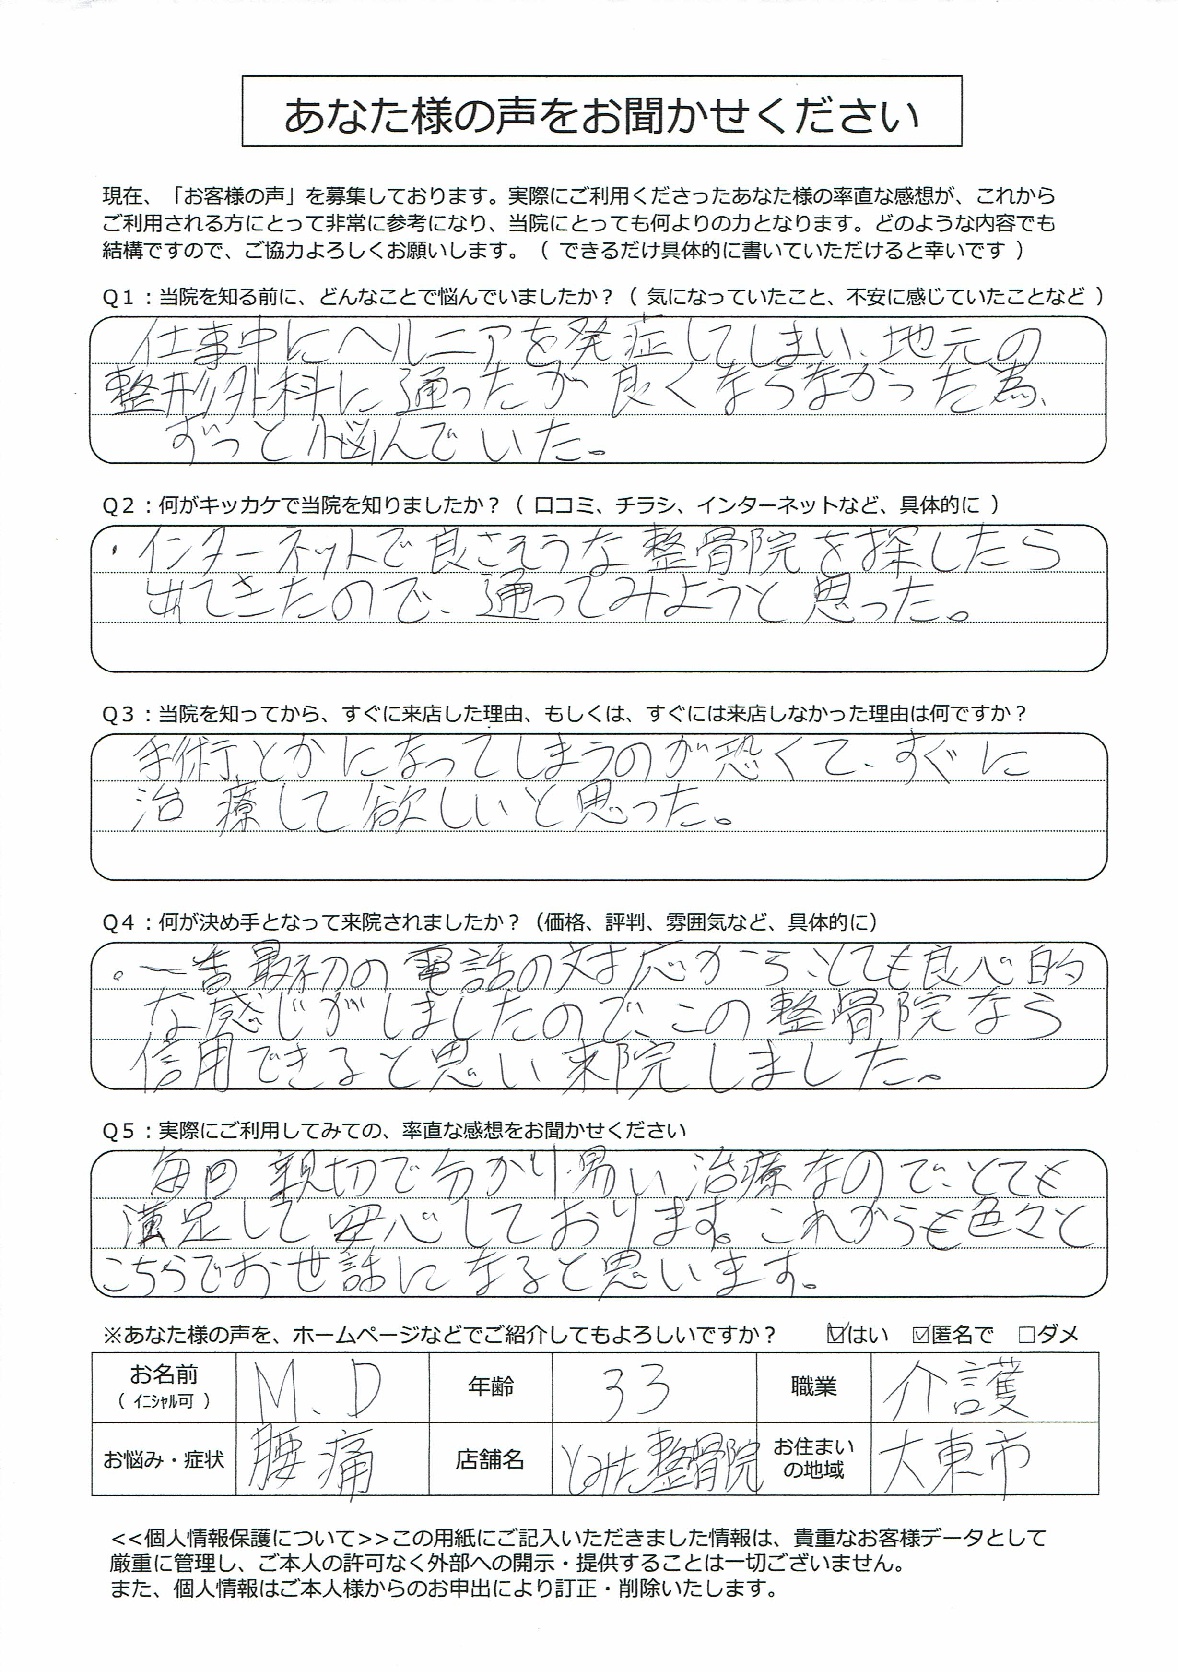 あなた様の声をお聞かせください
現在、「お客様の声」を募集しております。実際にご利用くださったあなた様の率直な感想が、これから
ご利用される方にとって非常に参考になり、当院にとっても何よりの力となります。どのような内容でも
結構ですので、ご協力よろしくお願いします。（ できるだけ具体的に書いていただけると幸いです ）
Ｑ１：当院を知る前に、どんなことで悩んでいましたか？（ 気になっていたこと、不安に感じていたことなど ）
仕事中にヘルニアを発症してしまい、地元の
整形外科に通ったが良くならなかった為、
ずっと悩んでいた。
Ｑ２：何がキッカケで当院を知りましたか？（ 口コミ、チラシ、インターネットなど、具体的に ）
・インターネットで良さそうな整骨院を探したら
出てきたので、通ってみようと思った。
Ｑ３：当院を知ってから、すぐに来店した理由、もしくは、すぐには来店しなかった理由は何ですか？
手術とかになってしまうのが恐くて、すぐに
治療して欲しいと思った。
Ｑ４：何が決め手となって来院されましたか？（価格、評判、雰囲気など、具体的に）
。一番最初の電話の対応から、とても良心的
な感じがしましたので、この整骨院なら
信用できると思い来院しました。
Ｑ５：実際にご利用してみての、率直な感想をお聞かせください
毎回親切で分かり易い治療なので、とても
満足して安心しております。これからも色々と
こちらでお世話になると思います。
※あなた様の声を、ホームページなどでご紹介してもよろしいですか？ ☑はい ☑匿名で □ダメ
お名前 M.D 年齢 33 職業 介護
（ イニシャル可 ）
お悩み・症状 腰痛 店舗名 とみた整骨院 お住まい 大東市
の地域
<<個人情報保護について>>この用紙にご記入いただきました情報は、貴重なお客様データとして
厳重に管理し、ご本人の許可なく外部への開示・提供することは一切ございません。
また、個人情報はご本人様からのお申出により訂正・削除いたします。